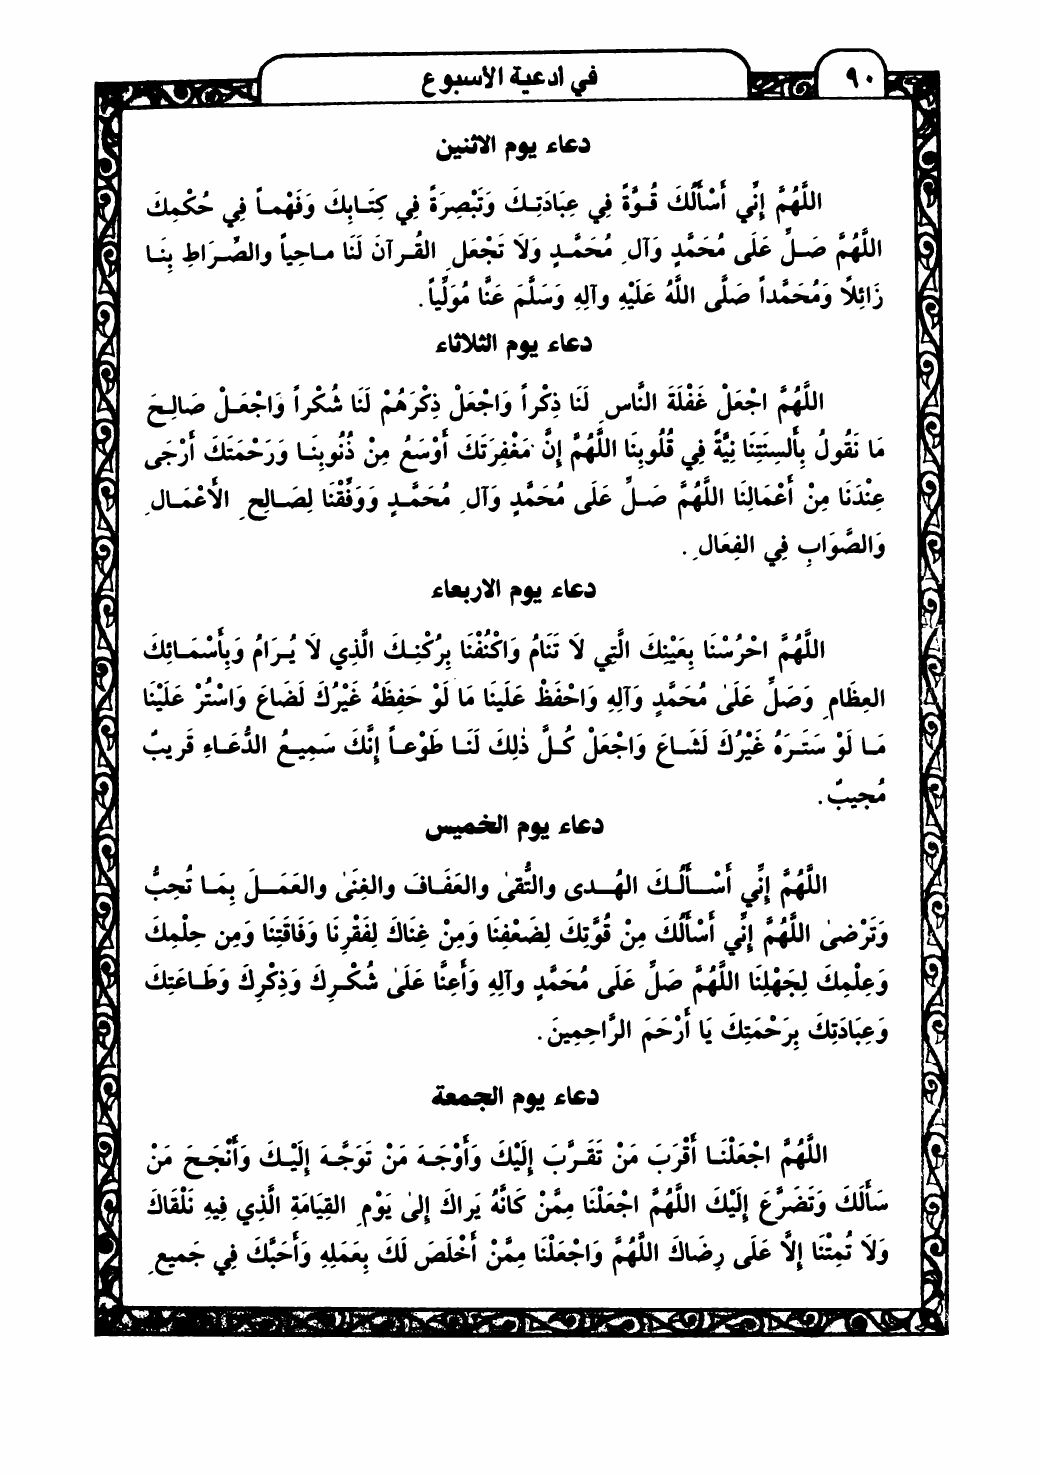 في ادعية الأسبوع
٩٠
دعاء يوم الاثنين
اللَّهُمَّ إِنِّي أَسْأَلُكَ قُوَّةً فِي عِبَادَتِكَ وَتَبْصِرَةً فِي كِتَابِكَ وَفَهْماً فِي حُكْمِكَ
اللَّهُمَّ صَلِّ عَلَى مُحَمَّدٍ وَآلِ مُحَمَّدٍ وَلاَ تَجْعَلِ القُرآنَ لَنَا مَاحِياً والصِّرَاطِ بِنَا
زَائِلاً وَمُحَمَّداً صَلَّى اللَّهُ عَلَيْهِ وآلِهِ وَسَلَّمَ عَنَّا مُوَلِّياً.
دعاء يوم الثلاثاء
اللَّهُمَّ اجْعَلْ غَفْلَةَ النَّاسِ لَنَا ذِكْراً وَاجْعَلْ ذِكْرَهُمْ لَنَا شُكْراً وَاجْعَلْ صَالِحَ
مَا نَقُولُ بِأَلسِنَتِنَا نِيَّةً فِي قُلُوبِنَا اللَّهُمَّ إِنَّ مَغْفِرَتَكَ أَوْسَعُ مِنْ ذُنُوبِنَا وَرَحْمَتَكَ أَرْجَى
عِنْدَنَا مِنْ أَعْمَالِنَا اللَّهُمَّ صَلِّ عَلَى مُحَمَّدٍ وَآلِ مُحَمَّدٍ وَوَفِّقْنَا لِصَالِحِ الأَعْمَالِ
وَالصَّوَابِ فِي الفِعَالِ.
دعاء يوم الاربعاء
اللَّهُمَّ احْرُسْنَا بِعَيْنِكَ الَّتِي لاَ تَنَامُ وَاكْنُفْنَا بِرُكْنِكَ الَّذِي لاَ يُرَامُ وَبِأَسْمَائِكَ
العِظَامِ وَصَلِّ عَلَىٰ مُحَمَّدٍ وَآلِهِ وَاحْفَظْ عَلَينَا مَا لَوْ حَفِظَهُ غَيْرُكَ لَضَاعَ وَاسْتُرْ عَلَيْنَا
مَا لَوْ سَتَرَهُ غَيْرُكَ لَشَاعَ وَاجْعَلْ كُلَّ ذٰلِكَ لَنَا طَوْعاً إِنَّكَ سَمِيعُ الدُّعَاءِ قَرِيبٌ
مُجِيبٌ.
دعاء يوم الخميس
اللَّهُمَّ إِنِّي أَسْأَلُكَ الهُدى والتُّقىٰ والعَفَافَ والغِنَىٰ والعَمَلَ بِمَا تُحِبُّ
وَتَرْضىٰ اللَّهُمَّ إِنِّي أَسْأَلُكَ مِنْ قُوَّتِكَ لِضَعْفِنَا وَمِنْ غِنَاكَ لِفَقْرِنَا وَفَاقَتِنَا وَمِن حِلْمِكَ
وَعِلْمِكَ لِجَهْلِنَا اللَّهُمَّ صَلِّ عَلَى مُحَمَّدٍ وآلِهِ وَأَعِنَّا عَلَىٰ شُكْرِكَ وَذِكْرِكَ وَطَاعَتِكَ
وَعِبَادَتِكَ بِرَحْمَتِكَ يَا أَرْحَمَ الرَّاحِمِينَ.
دعاء يوم الجمعة
اللَّهُمَّ اجْعَلْنَا أَقْرَبَ مَنْ تَقَرَّبَ إِلَيْكَ وَأَوْجَهَ مَنْ تَوَجَّهَ إِلَيْكَ وَأَنْجَحَ مَنْ
سَأَلَكَ وَتَضَرَّعَ إِلَيْكَ اللَّهُمَّ اجْعَلْنَا مِمَّنْ كَأَنَّهُ يَراكَ إِلىٰ يَوْمِ القِيَامَةِ الَّذِي فِيهِ نَلْقَاكَ
وَلاَ تُمِتْنَا إِلاَّ عَلَى رِضَاكَ اللَّهُمَّ وَاجْعَلْنَا مِمَّنْ أَخْلَصَ لَكَ بِعَمَلِهِ وَأَحَبَّكَ فِي جَمِيعِ